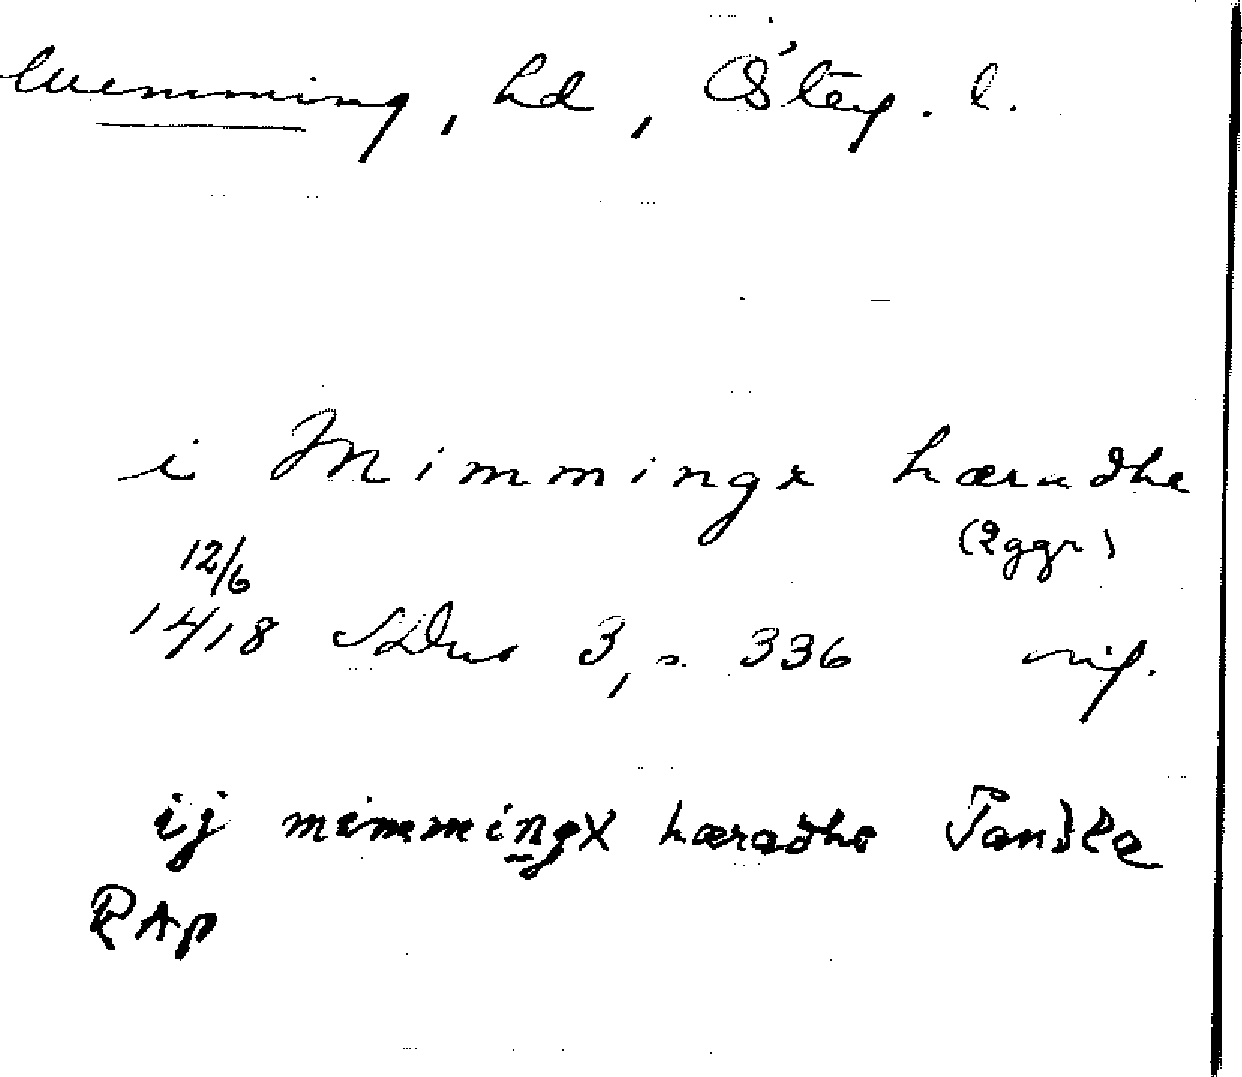 Memming, hd, Östeg. l.
i Mimmingx hæradhe
(2 ggr)
12/6
1418 SDns 3, s. 336 nif.
ij mimmingx hæradhe Tanska
RAp